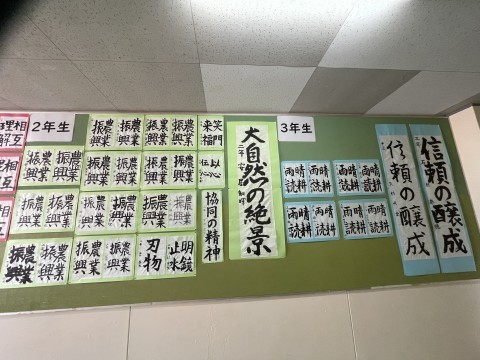 相互理解
相互理解
相互
2年生
農業振興
農業振興
農業振興
農業振興
笑門来福
農業振興
農業振興
農業振興
農業振興
農業振興
農業振興
以心伝心
農業振興
農業振興
農業振興
農業振興
農業振興
農業振興
協同の精神
農業振興
農業振興
農業振興
農業振興
刃物
明鏡止水
大自然の絶景
3年生
晴耕雨読
晴耕雨読
晴耕雨読
晴耕雨読
晴耕雨読
晴耕雨読
晴耕雨読
晴耕雨読
信頼の醸成
信頼の醸成